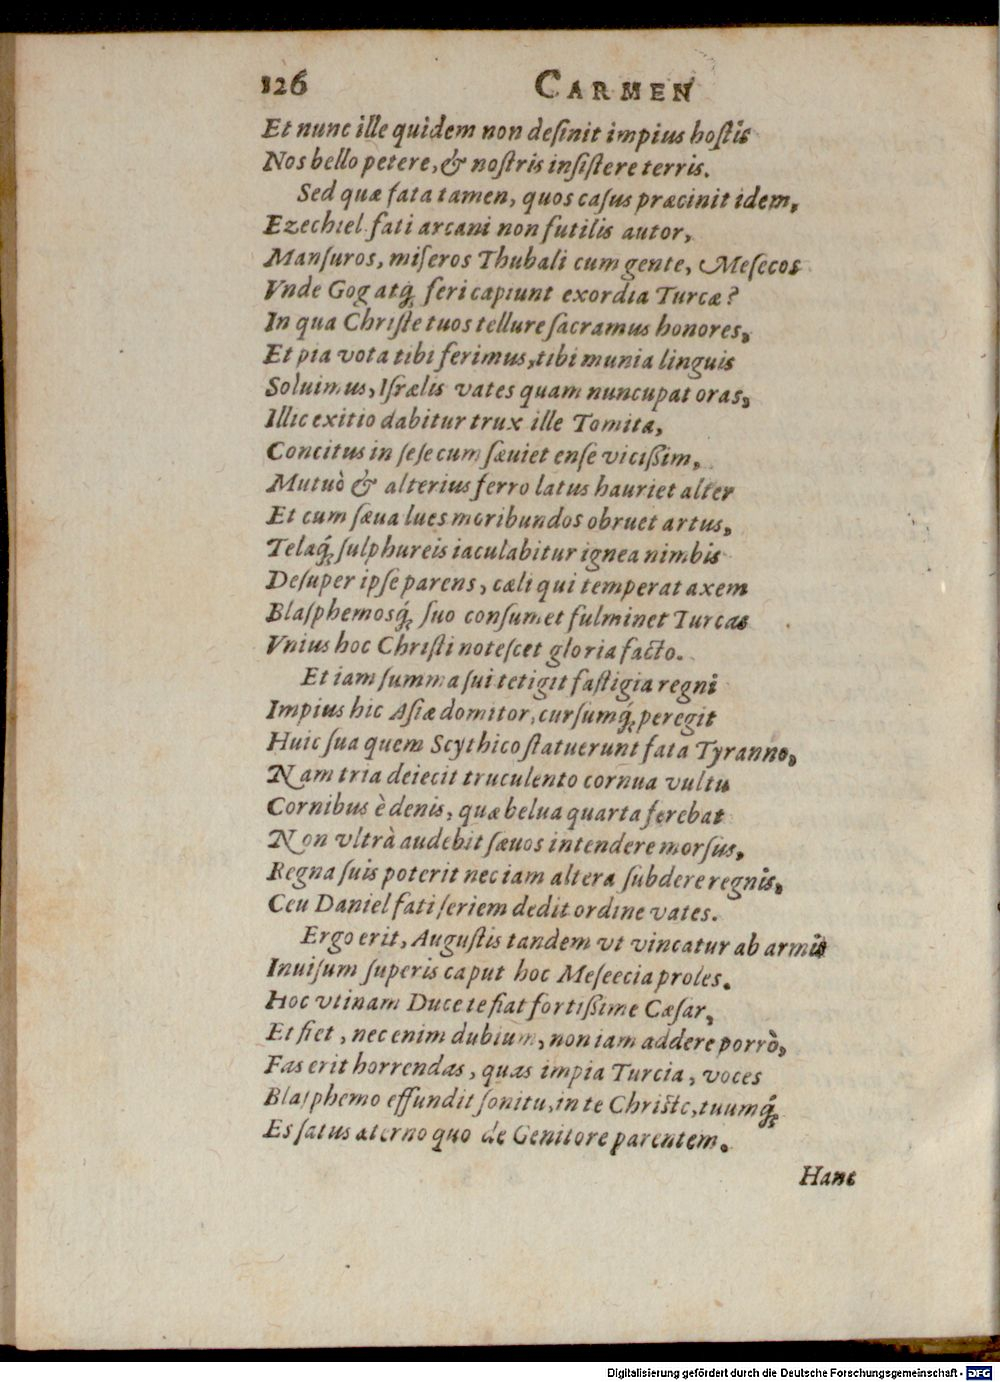 126 CARMEN
Et nunc ille quidem non deſinit impius hoſtis
Nos bello petere, & noſtris inſiſtere terris.
Sed quæ fata tamen, quos caſus præcinit idem,
Ezechiel fati arcani non futilis autor,
Manſuros, miſeros Thubali cum gente, Meſecos
Vnde Gog atq́; feri capiunt exordia Turcæ?
In qua Chriſte tuos tellure ſacramus honores,
Et pia vota tibi ferimus, tibi munia linguis
Soluimus, Iſrælis vates quam nuncupat oras,
Illic exitio dabitur trux ille Tomita,
Concitus in ſeſe cum ſæuiet enſe viciſſim,
Mutuò & alterius ferro latus hauriet alter
Et cum ſæua lues moribundos obruet artus,
Telaq́; ſulphureis iaculabitur ignea nimbis
Deſuper ipſe parens, cæli qui temperat axem
Blaſphemosq́; ſuo conſumet fulminet Turcas
Vnius hoc Chriſti noteſcet gloria facto.
Et iam ſumma ſui tetigit faſtigia regni
Impius hic Aſiæ domitor, curſumq́; peregit
Huic ſua quem Scythico ſtatuerunt fata Tyranno,
Nam tria deiecit truculento cornua vultu
Cornibus è denis, quæ belua quarta ferebat
Non vltrà audebit ſæuos intendere morſus,
Regna ſuis poterit nec iam altera ſubdere regnis,
Ceu Daniel fati ſeriem dedit ordine vates.
Ergo erit, Auguſtis tandem vt vincatur ab armis
Inuiſum ſuperis caput hoc Meſeecia proles.
Hoc vtinam Duce te fiat fortiſſime Cæſar,
Et fiet, nec enim dubium, non iam addere porrò,
Fas erit horrendas, quas impia Turcia, voces
Blaſphemo effundit ſonitu, in te Chriſte, tuumq́;
Es ſatus æterno quo de Genitore parentem.
Hanc
Digitalisierung gefördert durch die Deutsche Forschungsgemeinschaft - DFG